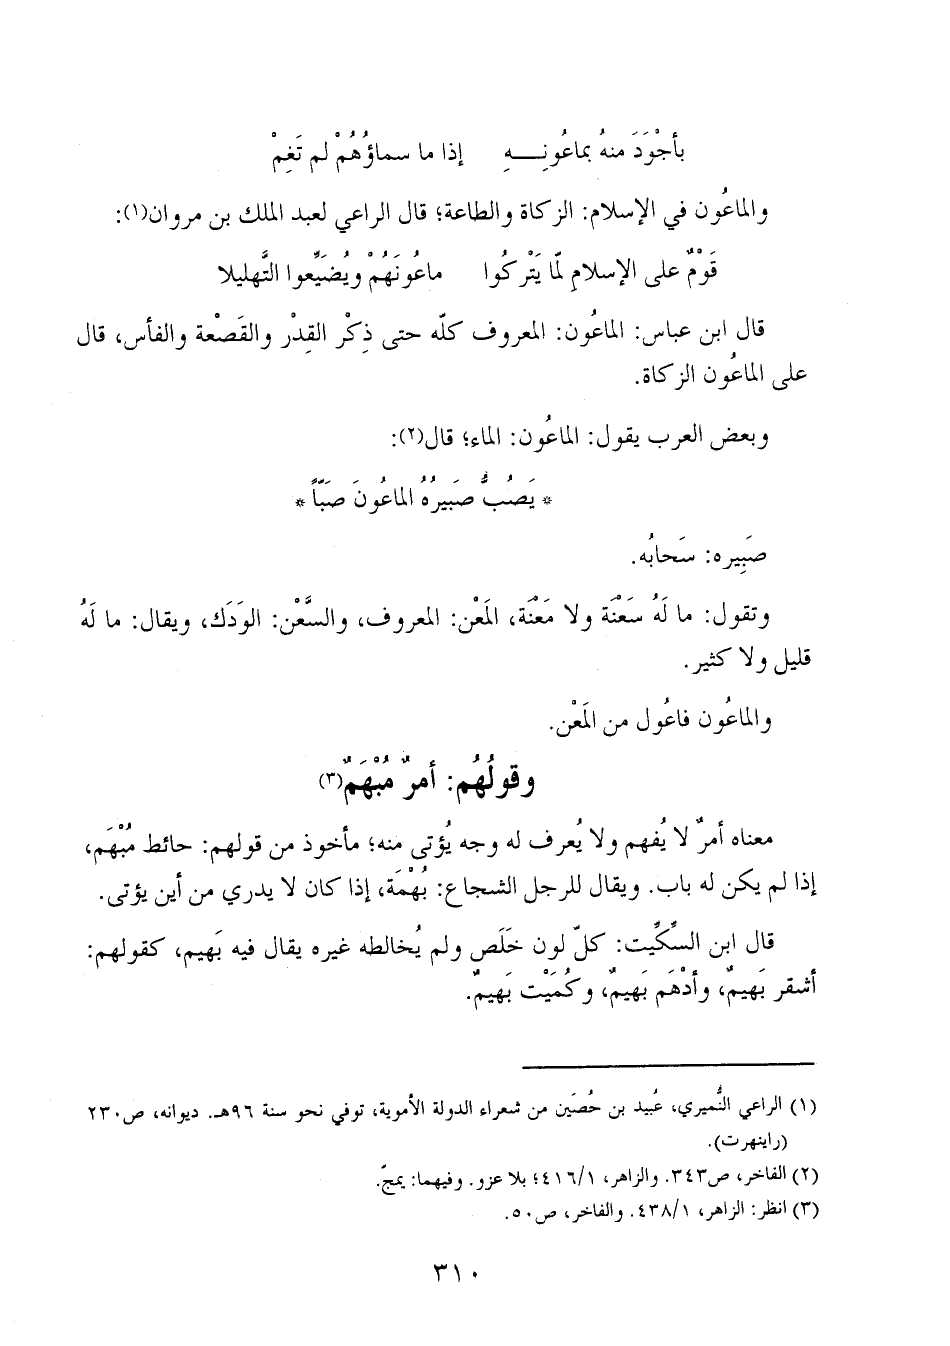 بأجْوَدَ منهُ بماعُونِـــهِ    إذا ما سماؤُهُمْ لم تَغِمْ
والماعُون في الإسلام: الزكاة والطاعة؛ قال الراعي لعبد الملك بن مروان(١):
قَوْمٌ على الإسلامِ لمّا يَتْركُوا    ماعُونَهُمْ ويُضَيِّعوا التَّهليلا
قال ابن عباس: الماعُون: المعروف كلّه حتى ذِكْر القِدْر والقَصْعة والفأس، قال
على الماعُون الزكاة.
وبعض العرب يقول: الماعُون: الماء؛ قال(٢):
* يَصُبُّ صَبيرُهُ الماعُونَ صَبّاً *
صَبِيره: سَحابُه.
وتقول: ما لَهُ سَعْنَة ولا مَعْنَة، المَعْن: المعروف، والسَّعْن: الوَدَك، ويقال: ما لَهُ
قليل ولا كثير.
والماعُون فاعُول من المَعْن.
وقولُهُم: أمرٌ مُبْهَمٌ(٣)
معناه أمرٌ لا يُفهم ولا يُعرف له وجه يُؤتى منه؛ مأخوذ من قولهم: حائط مُبْهَم،
إذا لم يكن له باب. ويقال للرجل الشجاع: بُهْمَة، إذا كان لا يدري من أين يؤتى.
قال ابن السكِّيت: كلّ لون خَلَص ولم يُخالطه غيره يقال فيه بَهيم، كقولهم:
أشقر بَهيمٌ، وأدْهَم بَهيمٌ، وكُمَيْت بَهيمٌ.
(١) الراعي النُّميري، عُبيد بن حُصَين من شعراء الدولة الأموية، توفي نحو سنة ٩٦هـ. ديوانه، ص٢٣٠
(راينهرت).
(٢) الفاخر، ص٣٤٣. والزاهر، ٤١٦/١؛ بلا عزو. وفيهما: يمجّ.
(٣) انظر: الزاهر، ٤٣٨/١. والفاخر، ص٥٠.
٣١٠